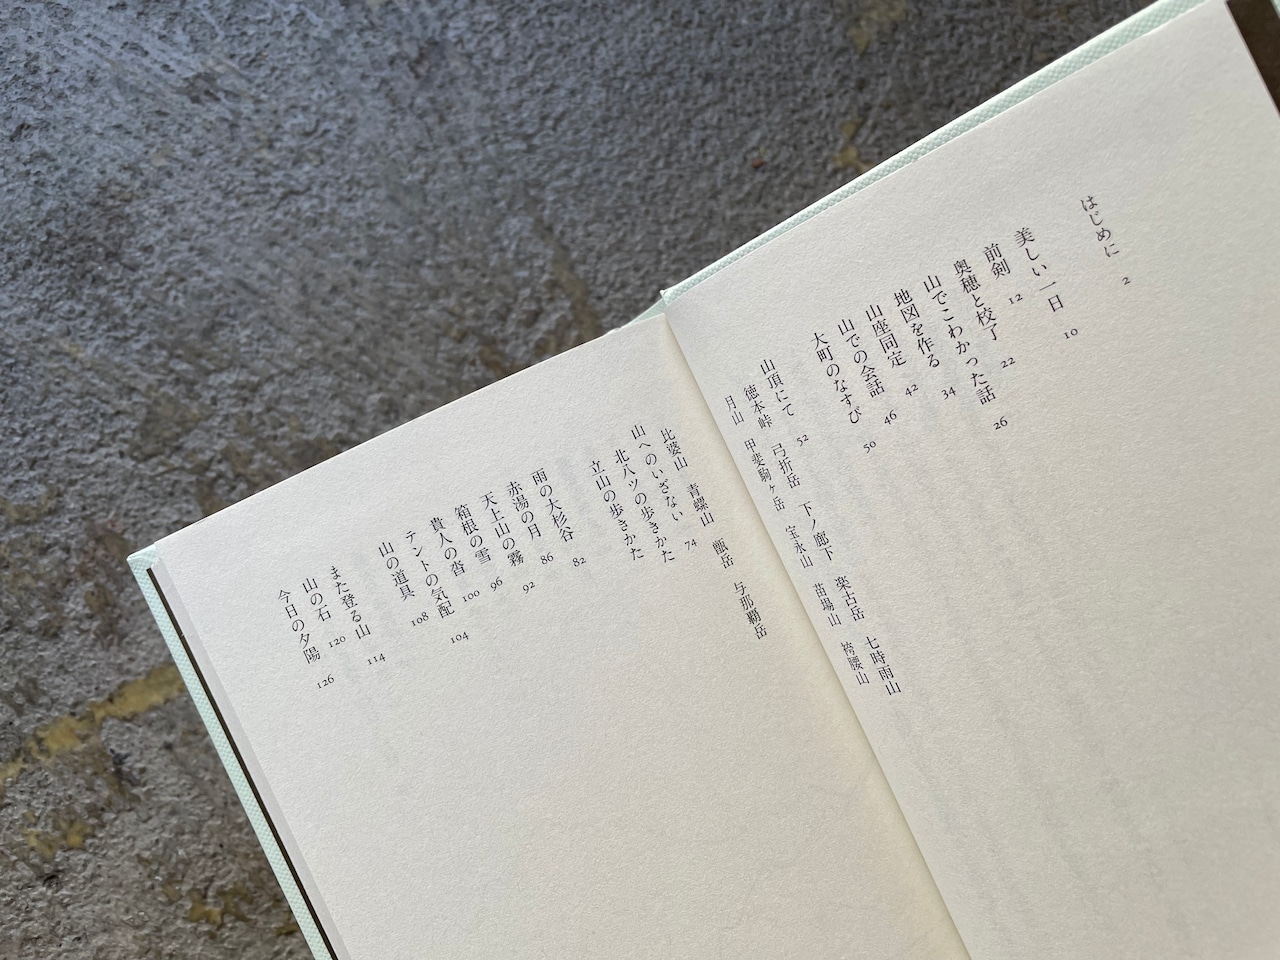 はじめに 2
美しい一日 10
前剣 12
奥穂と校了 22
山でこわかった話 26
地図を作る 34
山座同定 42
山での会話 46
大町のなすび 50
山頂にて 52
徳本峠 弓折岳 下ノ廊下 楽古岳 七時雨山
月山 甲斐駒ヶ岳 宝永山 苗場山 袴腰山
比婆山 青螺山 甑岳 与那覇岳
山へのいざない 74
北八ツの歩きかた
立山の歩きかた
雨の大杉谷 82
赤湯の月 86
天上山の霧 92
箱根の雪 96
貴人の沓 100
テントの気配 104
山の道具 108
また登る山 114
山の石 120
今日の夕陽 126